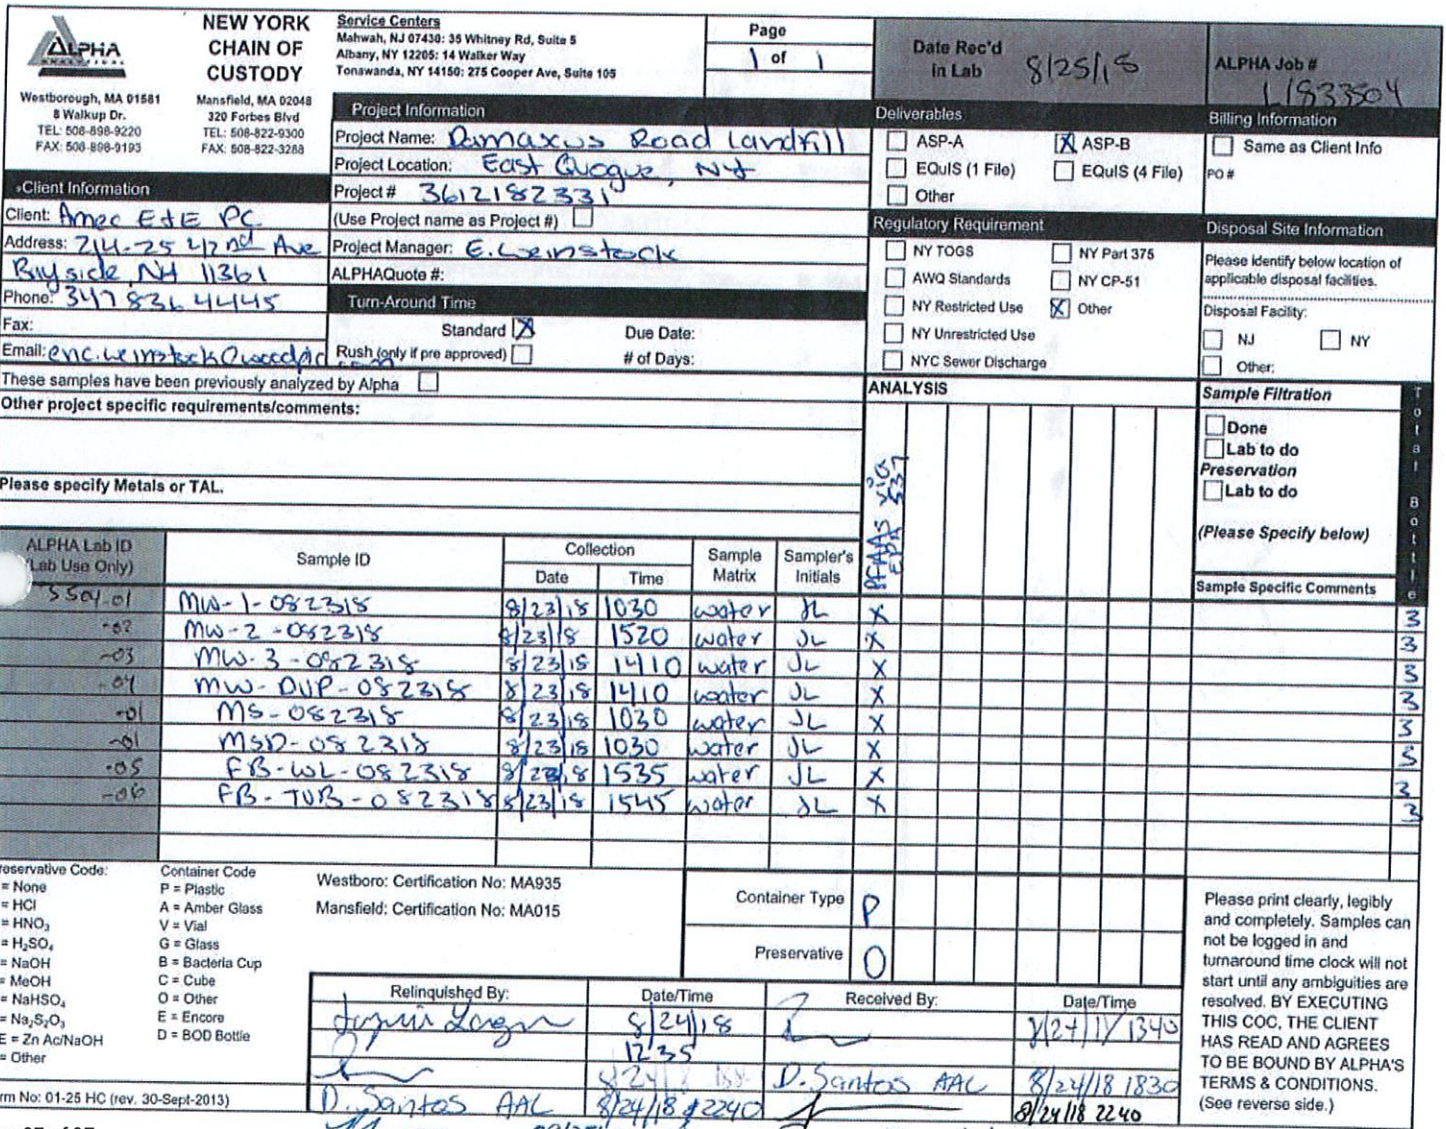 ALPHA
ANALYTICAL
NEW YORK
CHAIN OF
CUSTODY
Westborough, MA 01581
8 Walkup Dr.
TEL: 508-898-9220
FAX: 508-898-9193
Mansfield, MA 02048
320 Forbes Blvd
TEL: 508-822-9300
FAX: 508-822-3288
Service Centers
Mahwah, NJ 07430: 35 Whitney Rd, Suite 5
Albany, NY 12205: 14 Walker Way
Tonawanda, NY 14150: 275 Cooper Ave, Suite 105
Page
1 of 1
Date Rec'd
in Lab 8/25/18
ALPHA Job #
L1833504
Project Information
Project Name: Damaxus Road Landfill
Project Location: East Quogue, NY
Project # 3612182331
(Use Project name as Project #)
Project Manager: E. Weinstock
ALPHAQuote #:
Client Information
Client: Amec E&E PC
Address: 214-25 42nd Ave
Bayside, NY 11361
Phone: 347 836 4445
Fax:
Email: eric.weinstock@woodplc
.com
Turn-Around Time
Standard X Due Date:
Rush (only if pre approved) # of Days:
Deliverables
ASP-A X ASP-B
EQuIS (1 File) EQuIS (4 File)
Other
Regulatory Requirement
NY TOGS NY Part 375
AWQ Standards NY CP-51
NY Restricted Use X Other
NY Unrestricted Use
NYC Sewer Discharge
Billing Information
Same as Client Info
PO #
Disposal Site Information
Please identify below location of
applicable disposal facilities.
Disposal Facility:
NJ NY
Other:
These samples have been previously analyzed by Alpha
Other project specific requirements/comments:
Please specify Metals or TAL.
ANALYSIS
PFAAS via
EPA 537
Sample Filtration
Done
Lab to do
Preservation
Lab to do
(Please Specify below)
Total Bottle
ALPHA Lab ID
(Lab Use Only)
Sample ID
Collection
Date Time
Sample
Matrix
Sampler's
Initials
Sample Specific Comments
-01 MW-1-082318 8/23/18 1030 water JL X 3
-02 MW-2-082318 8/23/18 1520 water JL X 3
-03 MW-3-082318 8/23/18 1410 water JL X 3
-04 MW-DUP-082318 8/23/18 1410 water JL X 3
-01 MS-082318 8/23/18 1030 water JL X 3
-01 MSD-082318 8/23/18 1030 water JL X 3
-05 FB-WL-082318 8/23/18 1535 water JL X 3
-06 FB-TUB-082318 8/23/18 1545 water JL X 3
reservative Code:
= None
= HCl
= HNO₃
= H₂SO₄
= NaOH
= MeOH
= NaHSO₄
= Na₂S₂O₃
E = Zn Ac/NaOH
= Other
Container Code
P = Plastic
A = Amber Glass
V = Vial
G = Glass
B = Bacteria Cup
C = Cube
O = Other
E = Encore
D = BOD Bottle
Westboro: Certification No: MA935
Mansfield: Certification No: MA015
Container Type P
Preservative O
Relinquished By: Date/Time Received By: Date/Time
8/24/18
1235
1340
D. Santos AAL 8/24/18 1830
D. Santos AAL 8/24/18 2240 8/24/18 2240
Please print clearly, legibly
and completely. Samples can
not be logged in and
turnaround time clock will not
start until any ambiguities are
resolved. BY EXECUTING
THIS COC, THE CLIENT
HAS READ AND AGREES
TO BE BOUND BY ALPHA'S
TERMS & CONDITIONS.
(See reverse side.)
rm No: 01-25 HC (rev. 30-Sept-2013)